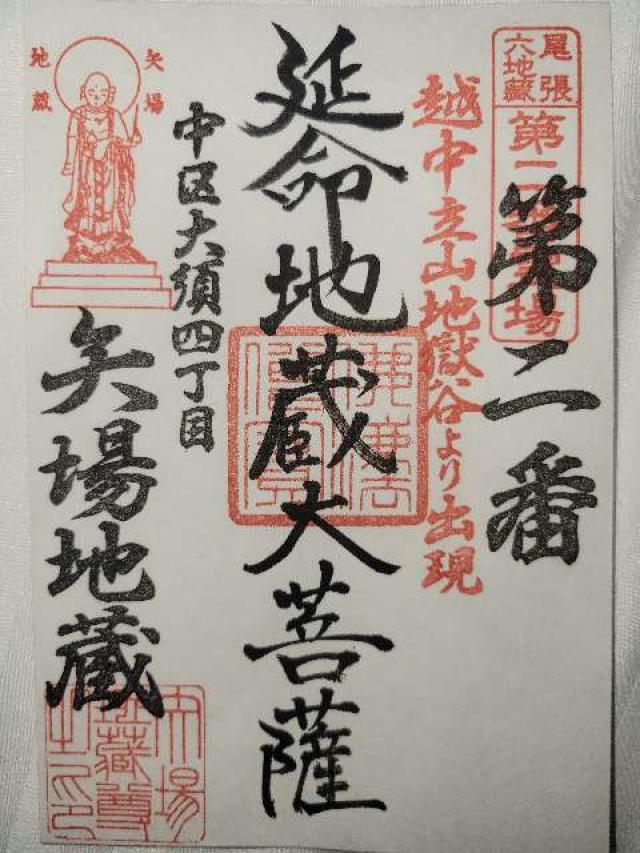 尾張
六地蔵
第二番霊場
第二番
越中立山地獄谷より出現
延命地蔵大菩薩
佛法僧寶
中区大須四丁目
矢場
地蔵
矢場地蔵
矢場
地蔵尊
之印